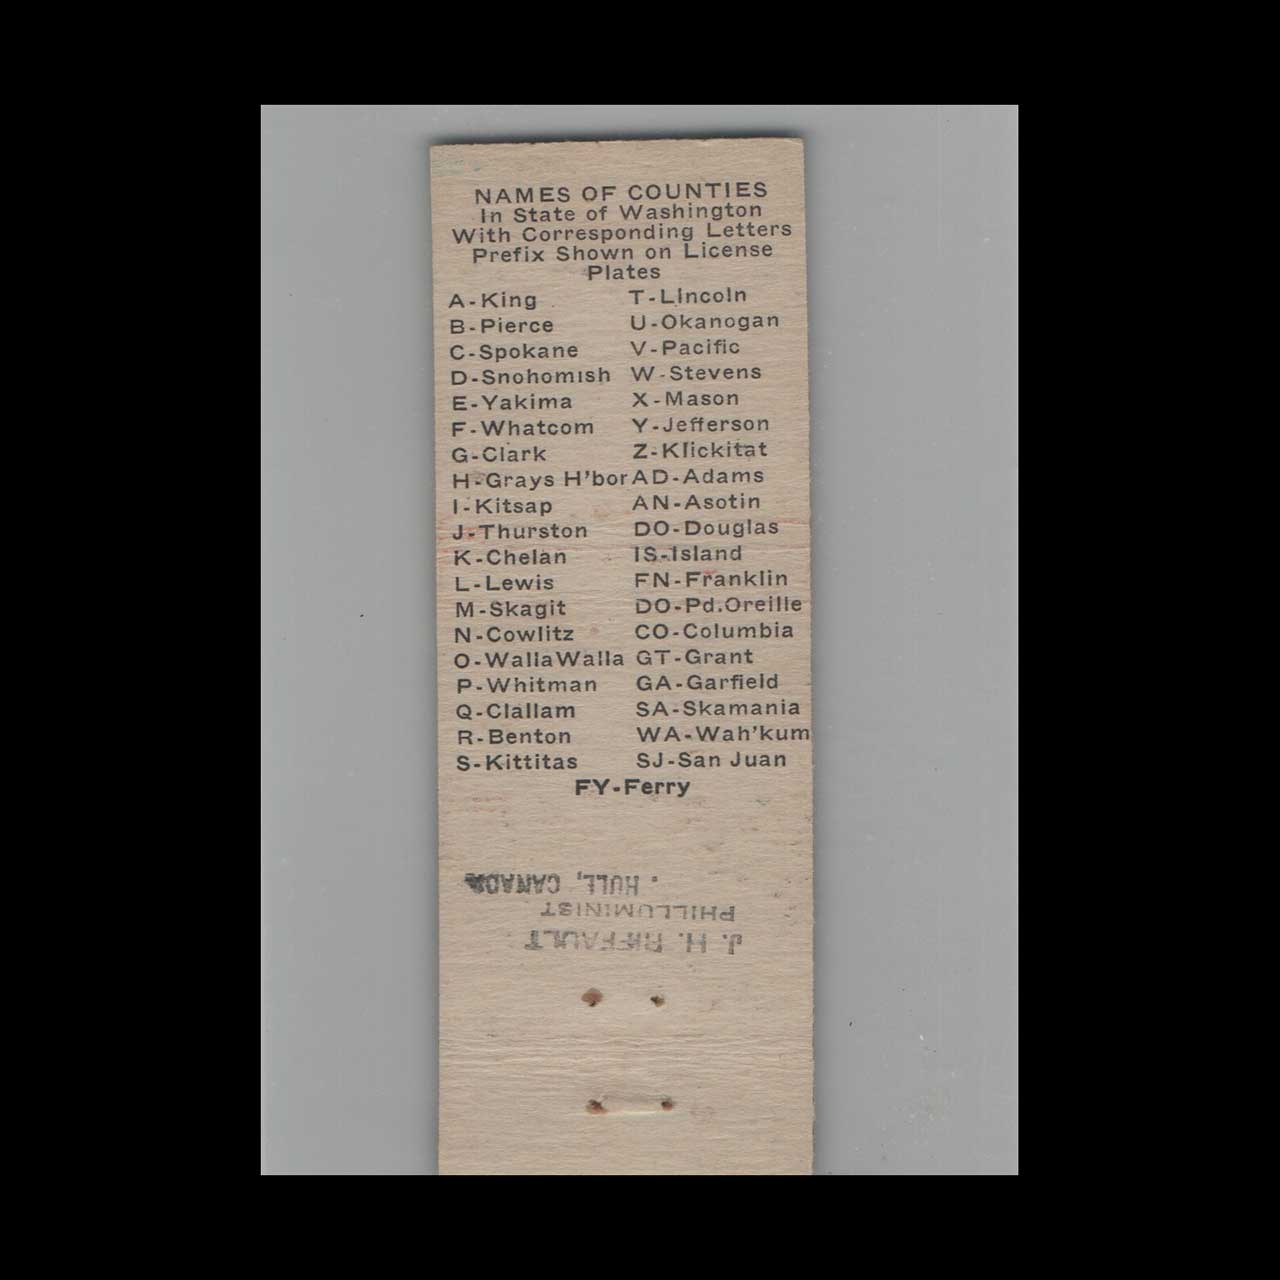 NAMES OF COUNTIES
In State of Washington
With Corresponding Letters
Prefix Shown on License
Plates
A-King
B-Pierce
C-Spokane
D-Snohomish
E-Yakima
F-Whatcom
G-Clark
H-Grays H'bor
I-Kitsap
J-Thurston
K-Chelan
L-Lewis
M-Skagit
N-Cowlitz
O-WallaWalla
P-Whitman
Q-Clallam
R-Benton
S-Kittitas
T-Lincoln
U-Okanogan
V-Pacific
W-Stevens
X-Mason
Y-Jefferson
Z-Klickitat
AD-Adams
AN-Asotin
DO-Douglas
IS-Island
FN-Franklin
DO-Pd.Oreille
CO-Columbia
GT-Grant
GA-Garfield
SA-Skamania
WA-Wah'kum
SJ-San Juan
FY-Ferry
J. H. RIFFAULT
PHILLUMINIST
HULL, CANADA